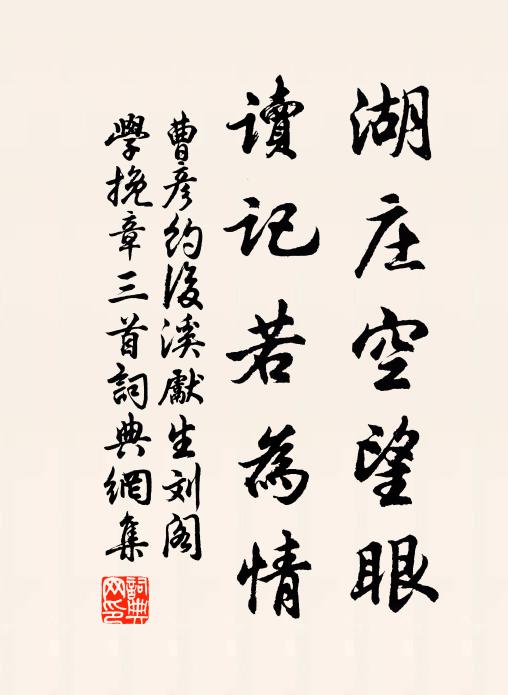 湖庄空望眼
读记若為情
曹彦約後溪獻生刘阁
學挽章三首詞典網集
詞典网印